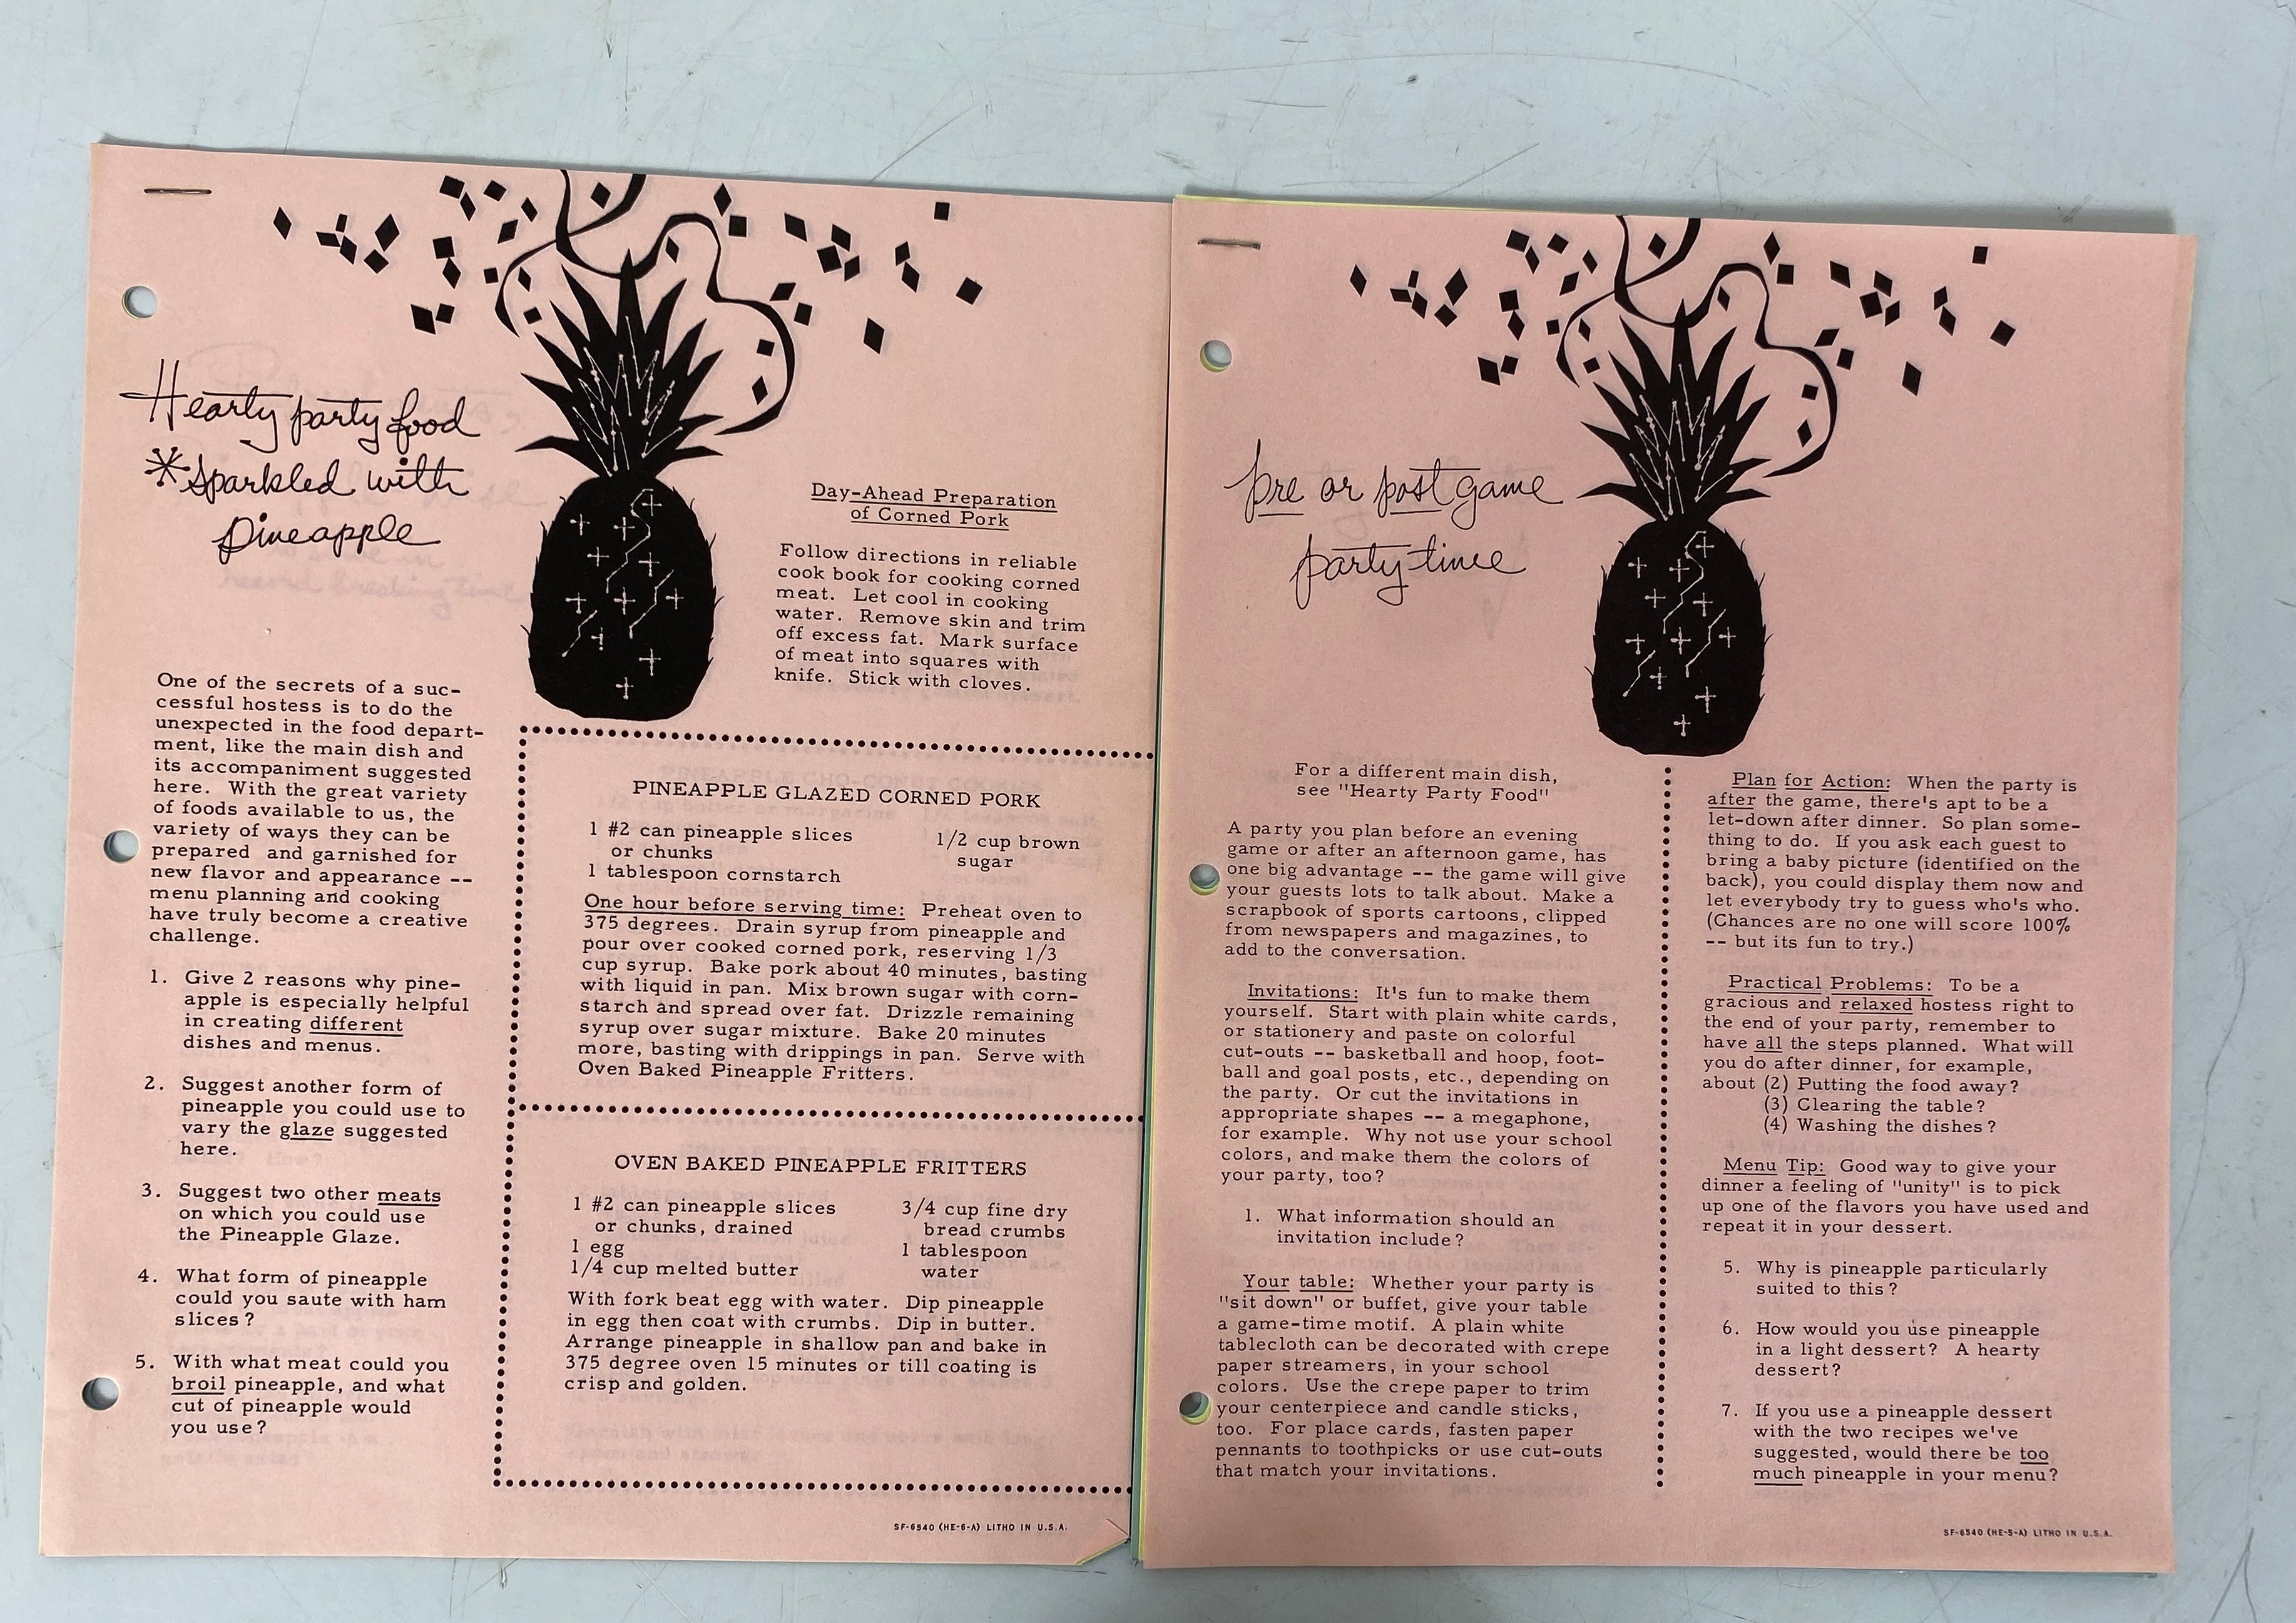 Hearty party food
*sparkled with
pineapple
One of the secrets of a suc-
cessful hostess is to do the
unexpected in the food depart-
ment, like the main dish and
its accompaniment suggested
here. With the great variety
of foods available to us, the
variety of ways they can be
prepared and garnished for
new flavor and appearance --
menu planning and cooking
have truly become a creative
challenge.
1. Give 2 reasons why pine-
apple is especially helpful
in creating different
dishes and menus.
2. Suggest another form of
pineapple you could use to
vary the glaze suggested
here.
3. Suggest two other meats
on which you could use
the Pineapple Glaze.
4. What form of pineapple
could you saute with ham
slices?
5. With what meat could you
broil pineapple, and what
cut of pineapple would
you use?
Day-Ahead Preparation
of Corned Pork
Follow directions in reliable
cook book for cooking corned
meat. Let cool in cooking
water. Remove skin and trim
off excess fat. Mark surface
of meat into squares with
knife. Stick with cloves.
PINEAPPLE GLAZED CORNED PORK
1 #2 can pineapple slices
or chunks
1 tablespoon cornstarch
1/2 cup brown
sugar
One hour before serving time: Preheat oven to
375 degrees. Drain syrup from pineapple and
pour over cooked corned pork, reserving 1/3
cup syrup. Bake pork about 40 minutes, basting
with liquid in pan. Mix brown sugar with corn-
starch and spread over fat. Drizzle remaining
syrup over sugar mixture. Bake 20 minutes
more, basting with drippings in pan. Serve with
Oven Baked Pineapple Fritters.
OVEN BAKED PINEAPPLE FRITTERS
1 #2 can pineapple slices
or chunks, drained
1 egg
1/4 cup melted butter
3/4 cup fine dry
bread crumbs
1 tablespoon
water
With fork beat egg with water. Dip pineapple
in egg then coat with crumbs. Dip in butter.
Arrange pineapple in shallow pan and bake in
375 degree oven 15 minutes or till coating is
crisp and golden.
SF-6540 (HE-6-A) LITHO IN U.S.A.
pre or post game
party time
For a different main dish,
see "Hearty Party Food"
A party you plan before an evening
game or after an afternoon game, has
one big advantage -- the game will give
your guests lots to talk about. Make a
scrapbook of sports cartoons, clipped
from newspapers and magazines, to
add to the conversation.
Invitations: It's fun to make them
yourself. Start with plain white cards,
or stationery and paste on colorful
cut-outs -- basketball and hoop, foot-
ball and goal posts, etc., depending on
the party. Or cut the invitations in
appropriate shapes -- a megaphone,
for example. Why not use your school
colors, and make them the colors of
your party, too?
1. What information should an
invitation include?
Your table: Whether your party is
"sit down" or buffet, give your table
a game-time motif. A plain white
tablecloth can be decorated with crepe
paper streamers, in your school
colors. Use the crepe paper to trim
your centerpiece and candle sticks,
too. For place cards, fasten paper
pennants to toothpicks or use cut-outs
that match your invitations.
Plan for Action: When the party is
after the game, there's apt to be a
let-down after dinner. So plan some-
thing to do. If you ask each guest to
bring a baby picture (identified on the
back), you could display them now and
let everybody try to guess who's who.
(Chances are no one will score 100%
-- but its fun to try.)
Practical Problems: To be a
gracious and relaxed hostess right to
the end of your party, remember to
have all the steps planned. What will
you do after dinner, for example,
about (2) Putting the food away?
(3) Clearing the table?
(4) Washing the dishes?
Menu Tip: Good way to give your
dinner a feeling of "unity" is to pick
up one of the flavors you have used and
repeat it in your dessert.
5. Why is pineapple particularly
suited to this?
6. How would you use pineapple
in a light dessert? A hearty
dessert?
7. If you use a pineapple dessert
with the two recipes we've
suggested, would there be too
much pineapple in your menu?
SF-6540 (HE-5-A) LITHO IN U.S.A.